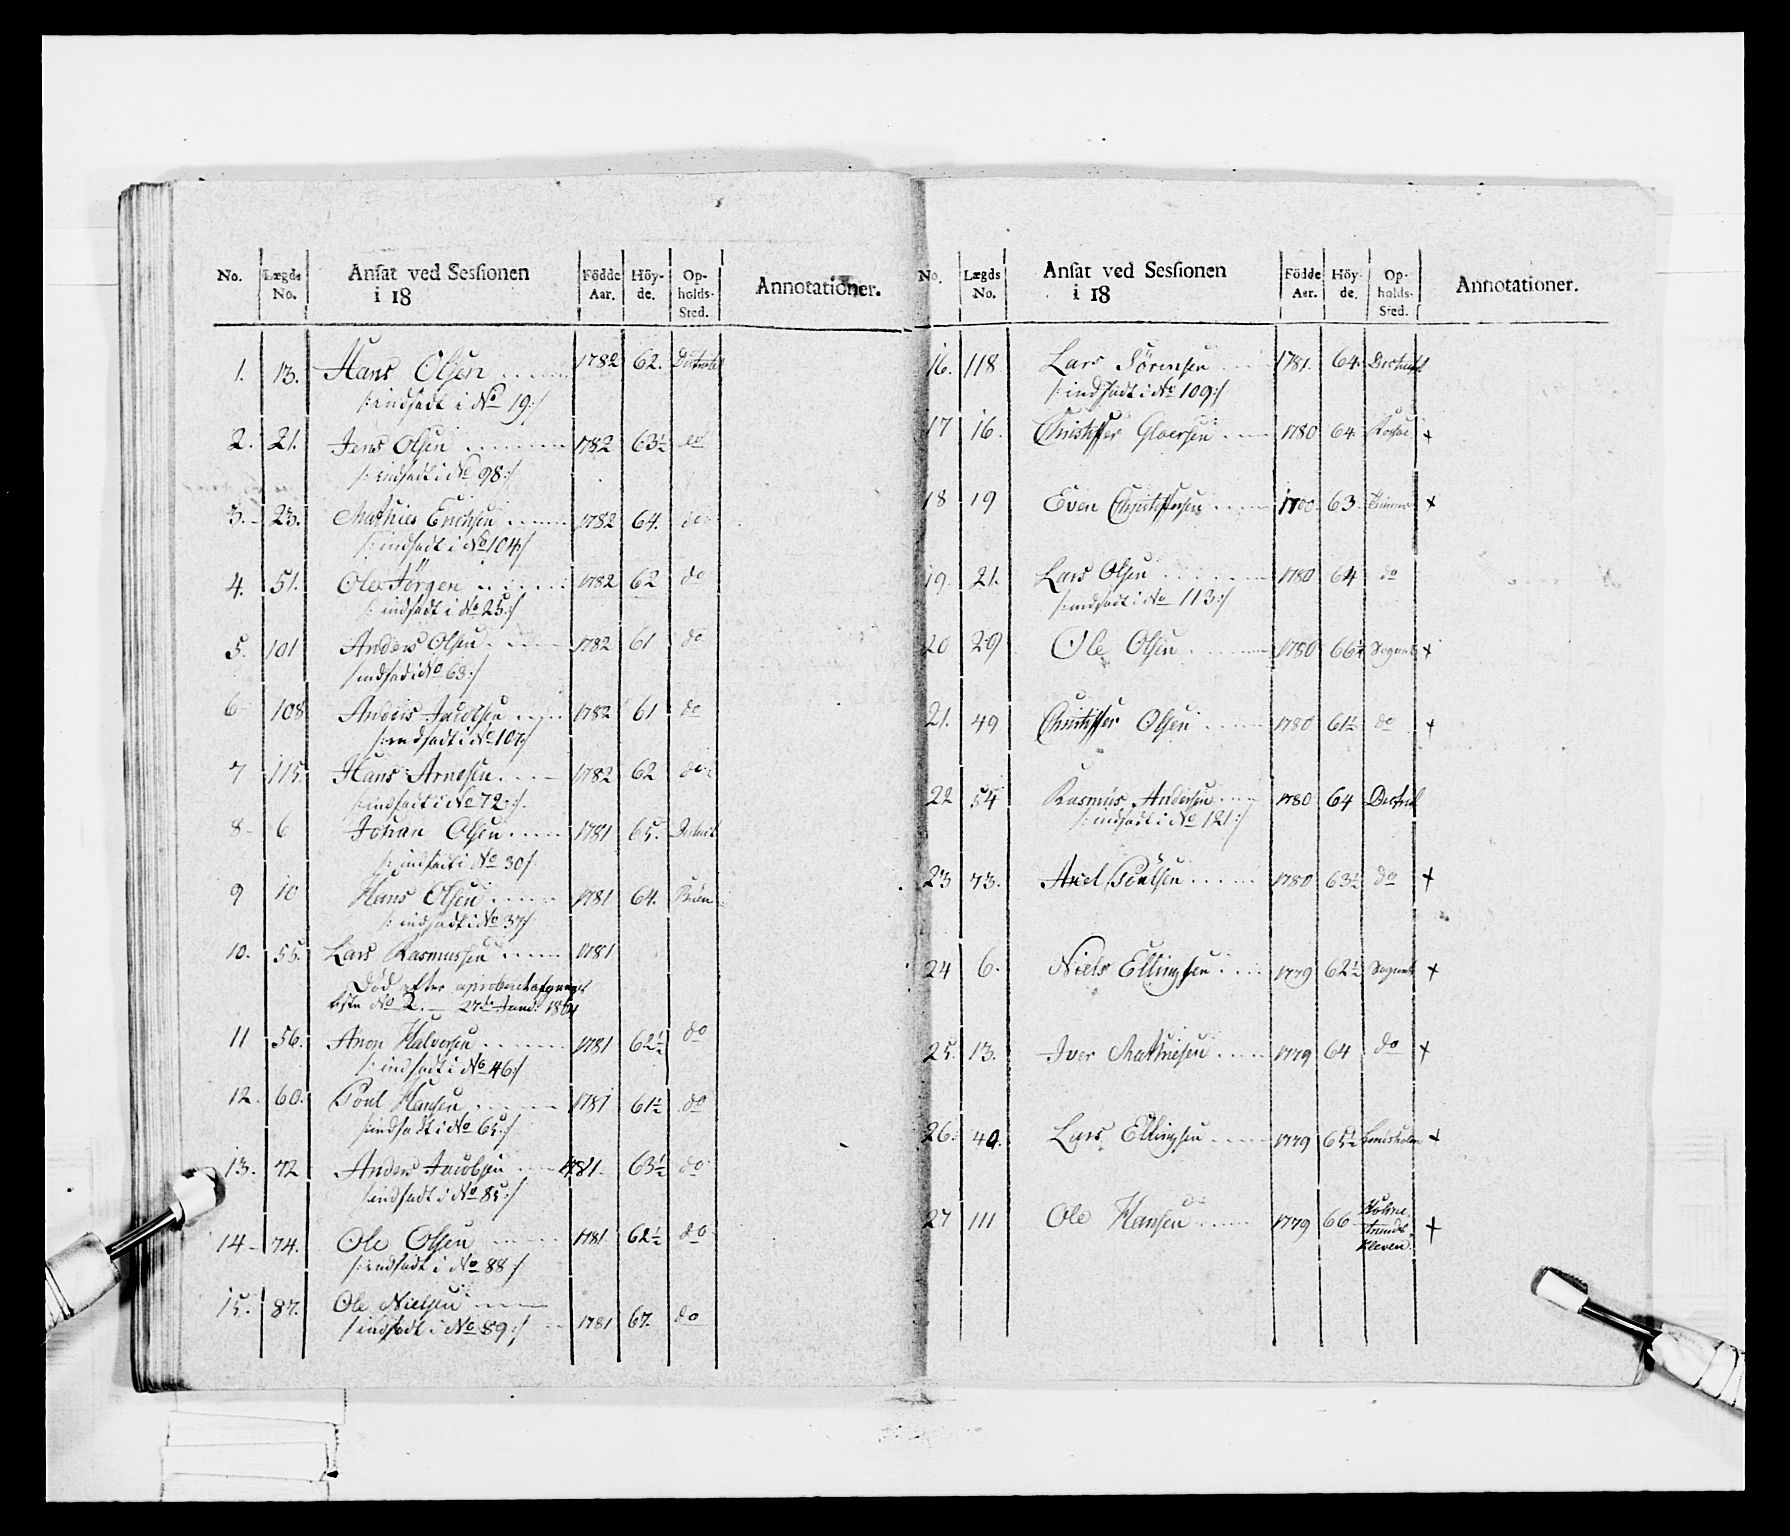 No. Lægds No. Ansat ved Sessionen i 18 Födde Aar. Höy-de. Op-holds-Sted. Annotationer.
1. 13. Hans Olsen 1782 62. District
/: indsadt i No 19 :/
2. 21. Jens Olsen 1782 63½ do
/: indsadt i No 98 :/
3. 23. Mathies Erichsen 1782 64. do
/: indsadt i No 104 :/
4. 51. Ole Jörgen 1782 62 do
/: indsadt i No 25 :/
5. 101 Anders Olsen 1782 61 do
/ indsad i No 63 :/
6 108 Anders Jacobsen 1782 61 do
/: indsadt i No 107 :/
7 115 Hans Arnesen 1782 62 do
/: indsadt i No 72 :/
8 6 Johan Olsen 1781 65.
/: indsadt i No 30 /
9 10 Hans Olsen 1781 64.
/: indsadt i No 37 /
10. 55. Lars Rasmussen 1781
Död efter
liste No 2. 27de Janu: 1801
11 56. Halvorsen 1781 62½ do
/: indsadt i No 46 :/
12. 60. Poul Hansen 1781 61½ do
/: indsadt i No 65 :/
13. 72 Anders Jacobsen 1781 63½ do
/ indsadt i No 85 :/
14 74. Ole Olsen 1781 62½ do
/: indsadt i No 88 :/
15. 87. Ole Nielsen
/ indsadt i No 89 :/ 1781 67. do
No. Lægds No. Ansat ved Sessionen i 18 Födde Aar. Höy-de. Op-holds-Sted. Annotationer.
16. 118 Lars Sörensen 1781. 64. District
/: indsadt i No 109 :/
17 16. Christopher 1780 64 +
18 19 Even Christophersen 63. +
19. 21. Lars Olsen 1780 64 do
/: indsadt i No 113 :/
20 29 Ole Olsen 1780 +
21. 49 Christopher Olsen 1780 61½ do +
22 54 Rasmus Andersen 1780 64 District
/: indsadt i No 121 :/
23 73. Axel Poulsen 1780 63½ do +
24 6. Niels Ellingsen 1779 62½ +
25. 13. Iver Mathiesen 1779 64 do +
26. 40. Lars Ellingsen 1779 65½ +
27 111 Ole Hansen 1779 66 +